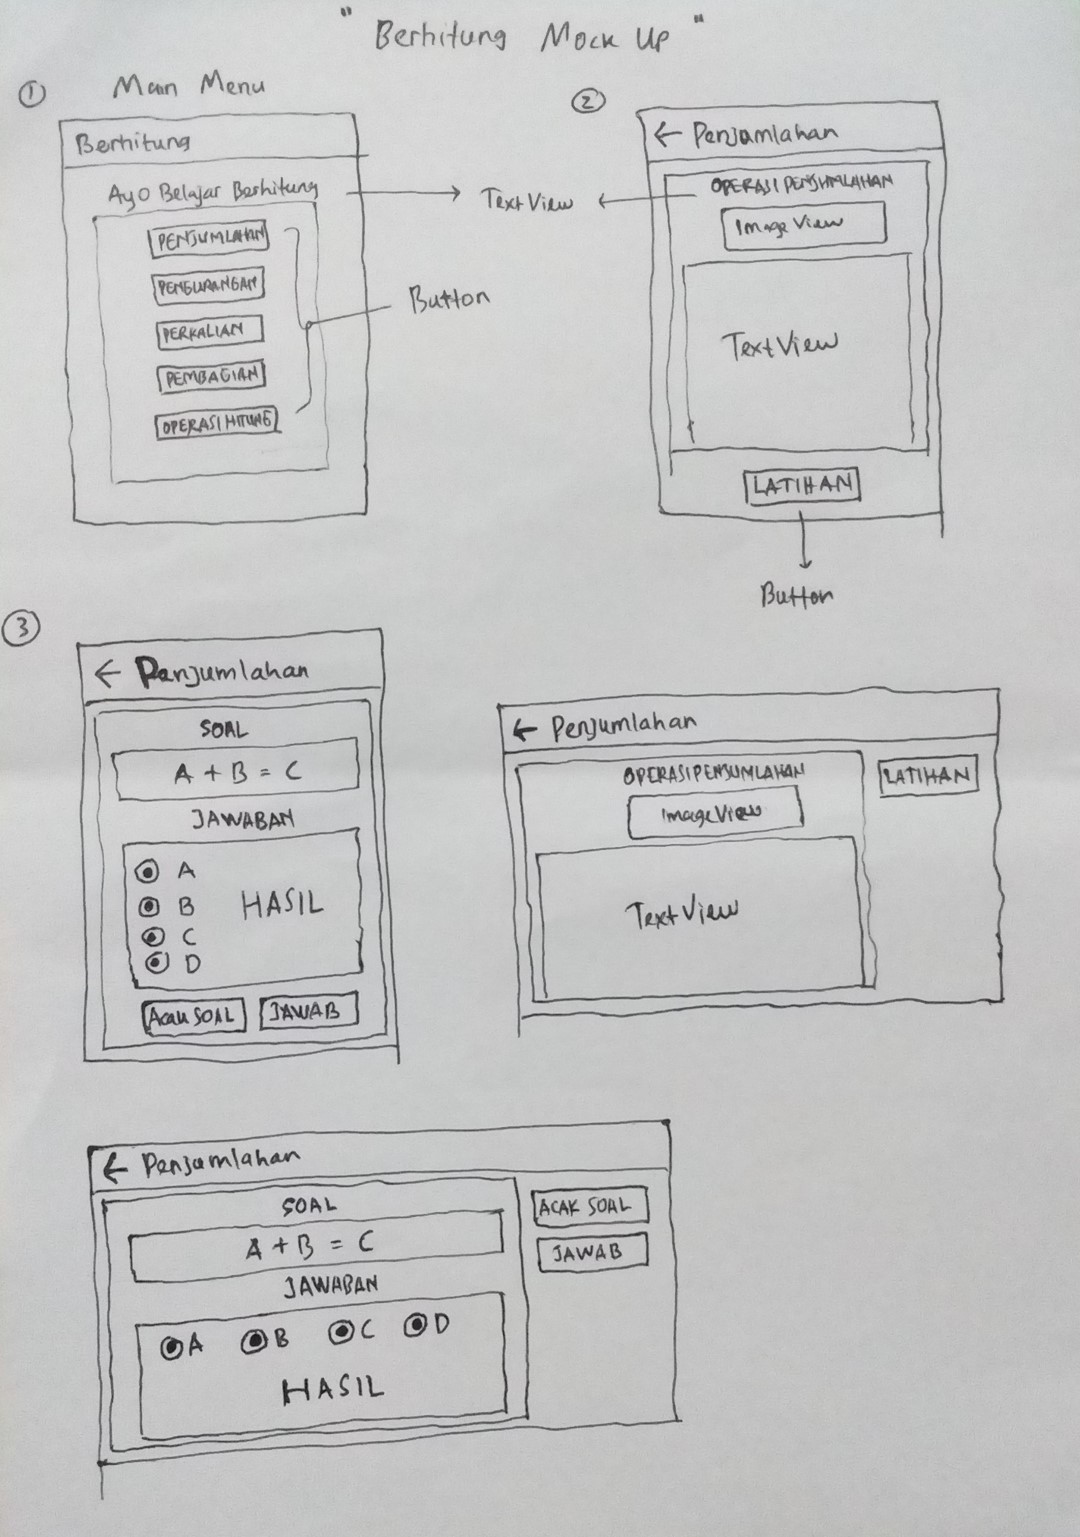 " Berhitung Mock Up "
① Main Menu
Berhitung
Ayo Belajar Berhitung
PENJUMLAHAN
PENGURANGAN
PERKALIAN
PEMBAGIAN
OPERASI HITUNG
TextView
Button
②
← Penjumlahan
OPERASI PENJUMLAHAN
ImageView
TextView
LATIHAN
Button
③
← Penjumlahan
SOAL
A + B = C
JAWABAN
A
B HASIL
C
D
Acak SOAL JAWAB
← Penjumlahan
OPERASI PENJUMLAHAN
LATIHAN
ImageView
TextView
← Penjumlahan
SOAL
A + B = C
JAWABAN
A B C D
HASIL
ACAK SOAL
JAWAB